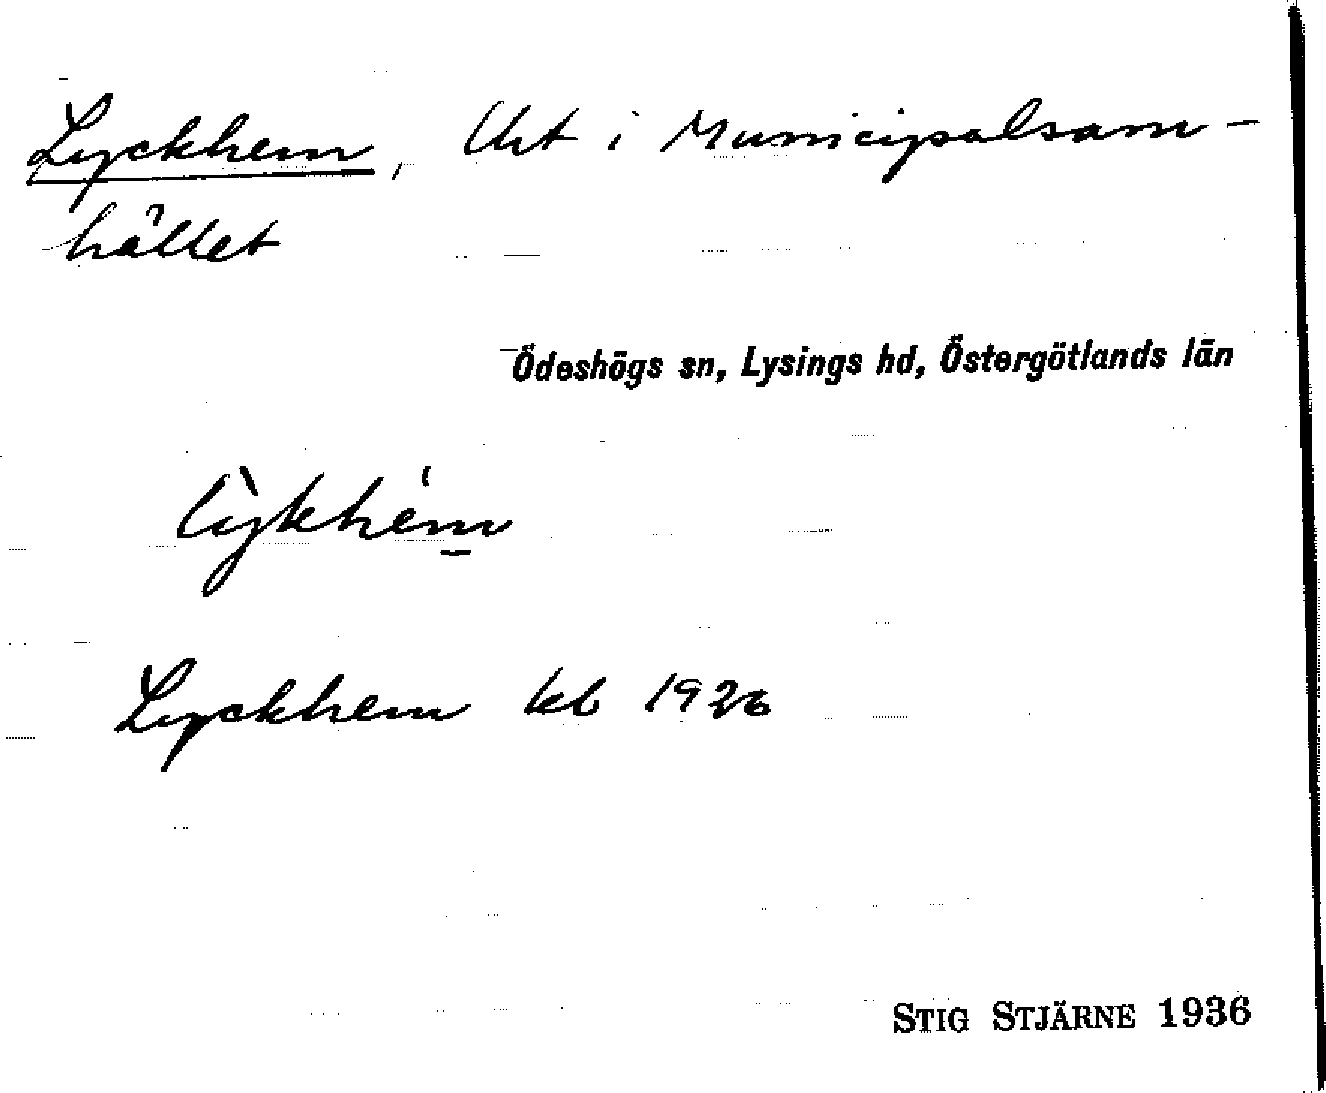 Lyckhem, Uht i Municipalsam-
hället
Ödeshögs sn, Lysings hd, Östergötlands län
Lyckhem kb 1926
STIG STJÄRNE 1936